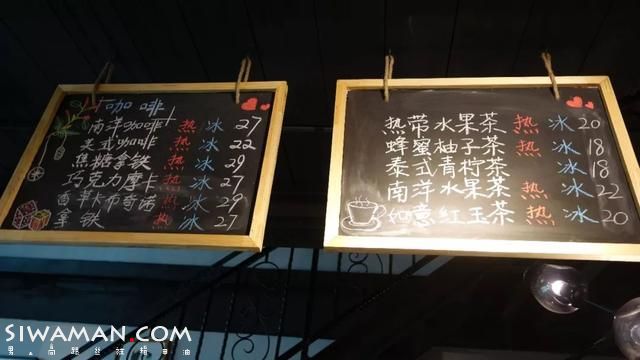 咖啡
南洋咖啡 热 冰 27
美式咖啡 热 冰 22
焦糖拿铁 热 冰 29
巧克力摩卡 热 冰 27
香草卡布奇诺 热 冰 29
拿铁 热 冰 27
热带水果茶 热 冰 20
蜂蜜柚子茶 热 冰 18
泰式青柠茶 冰 18
南洋水果茶 热 冰 22
如意红玉茶 热 冰 20
SIWAMAN.COM